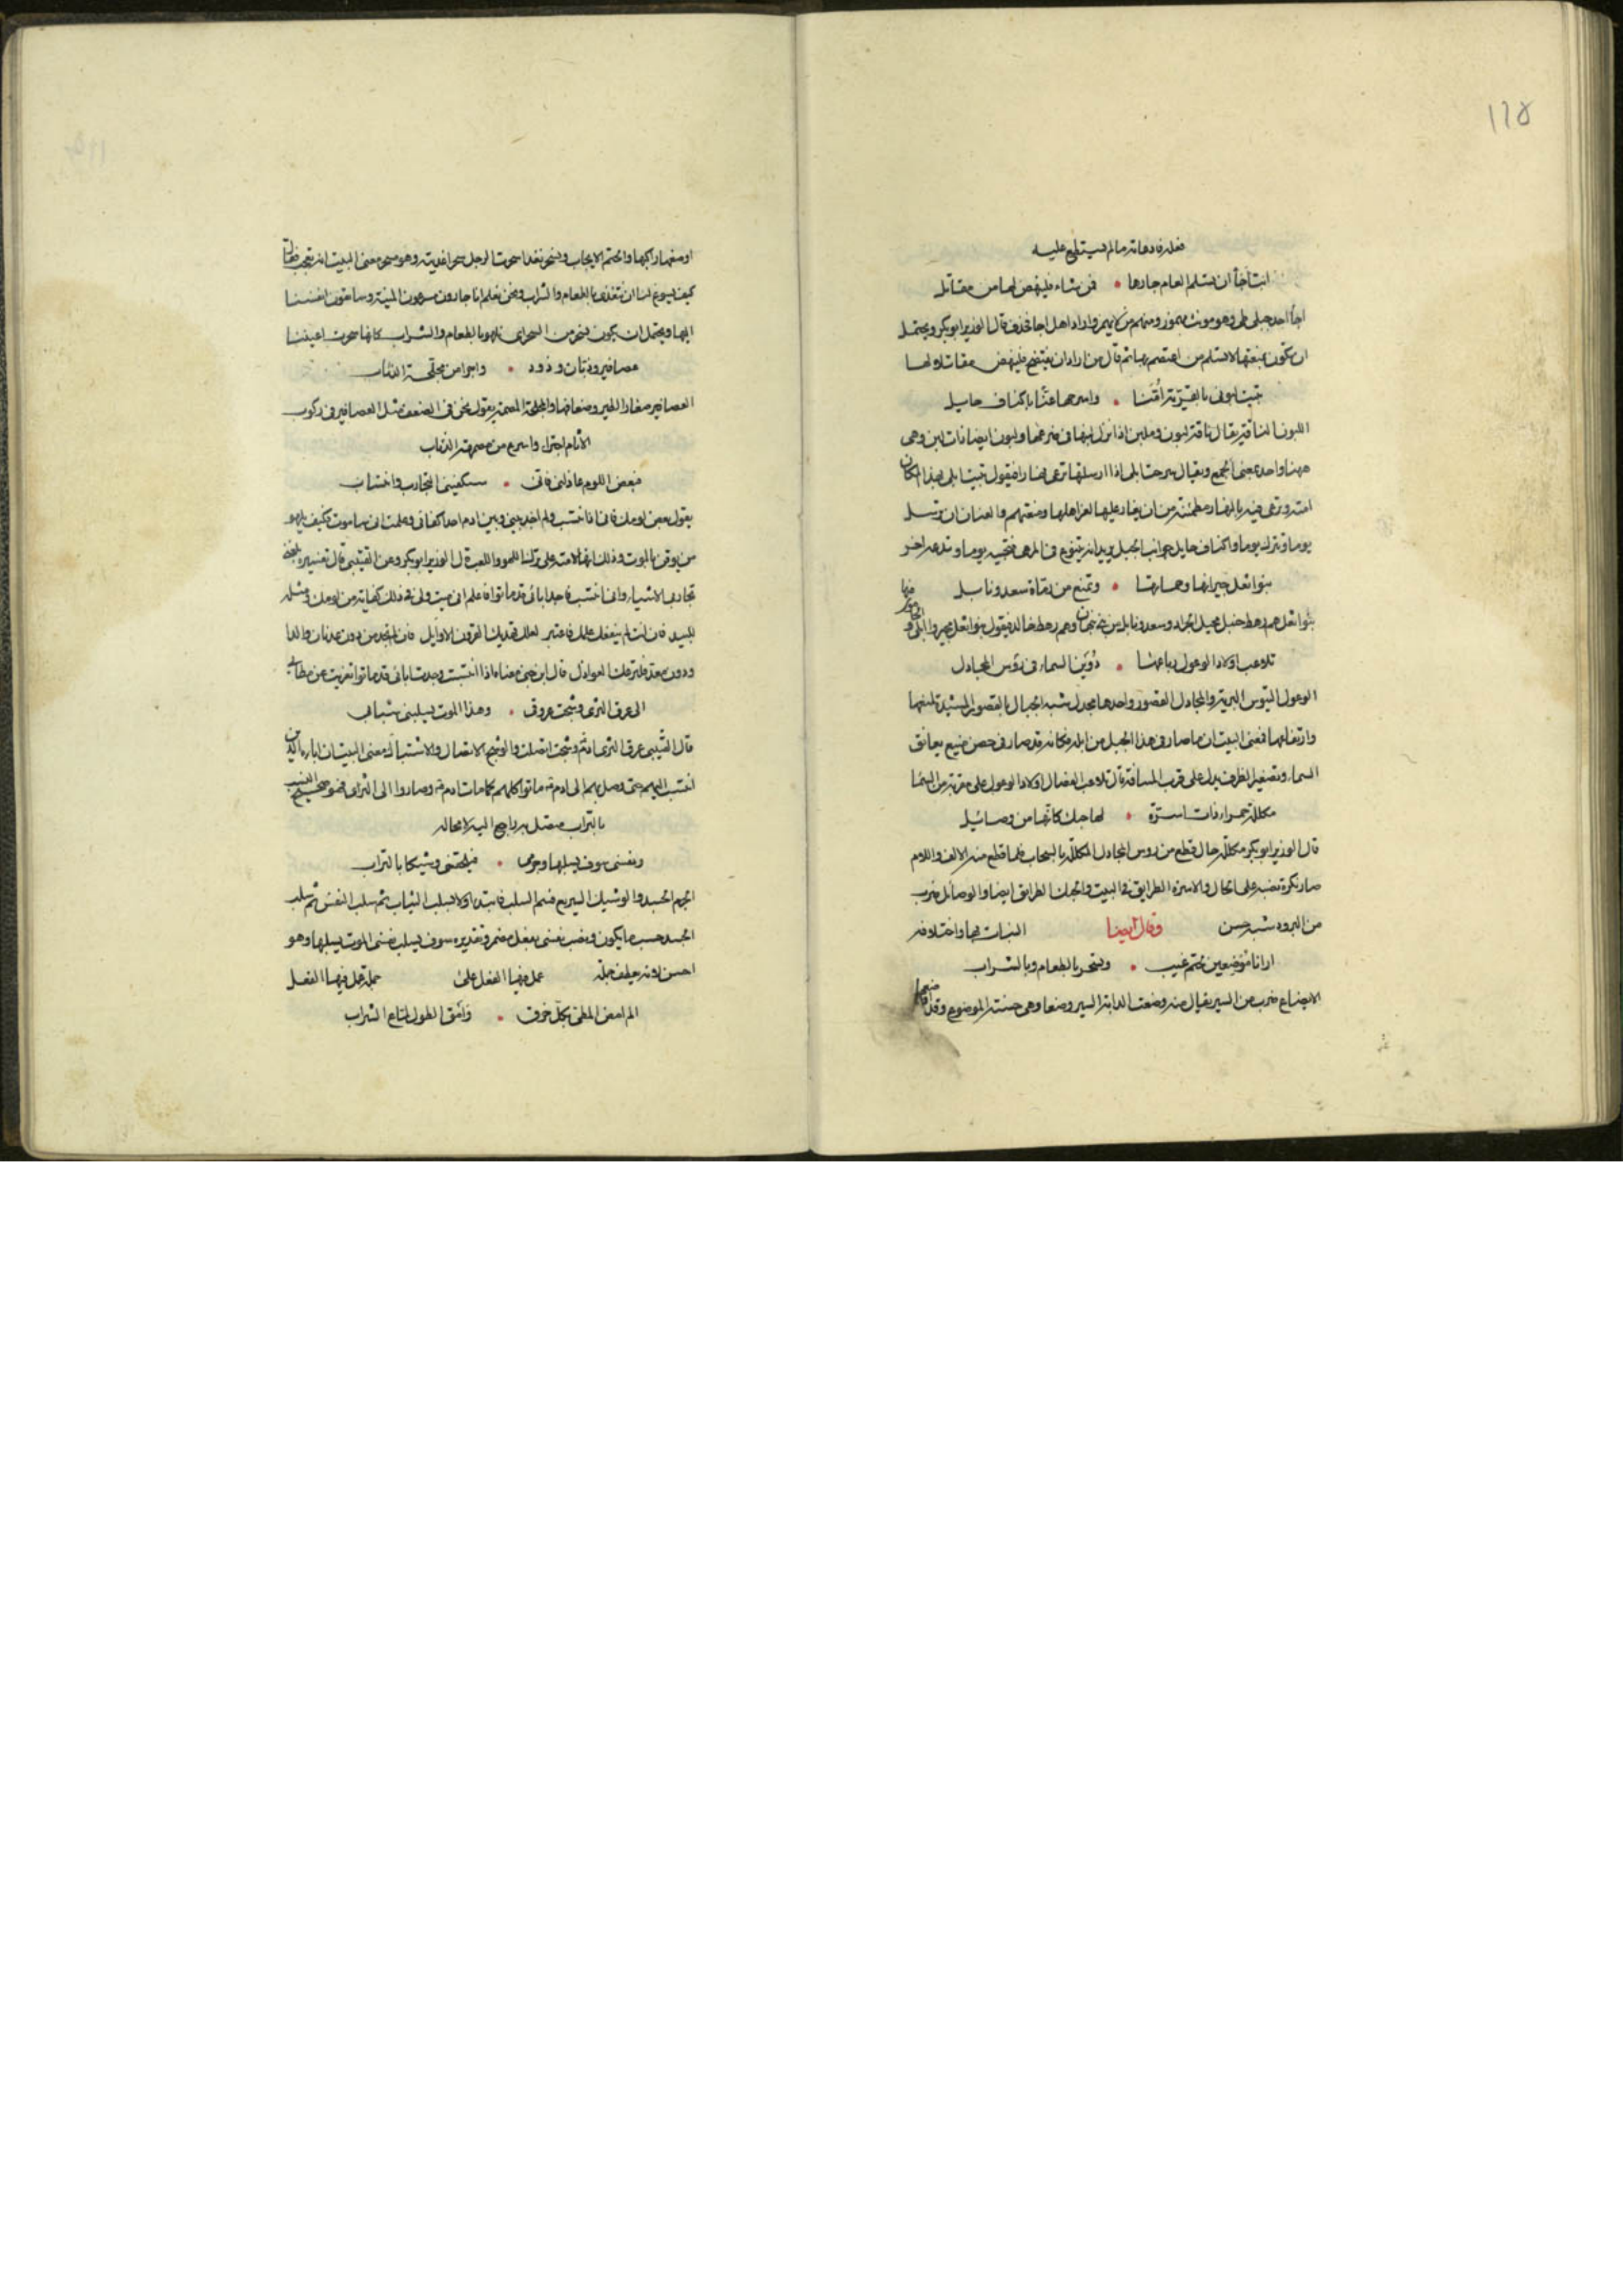 ١١٨
فعله فادعا انه ما لم يستطع عليه
ابت اجأ ان تسلم العام جارها • فمن شاء فلينهض لها من مقاتل
اجأ احد جبلي طي وهو مونث مهموز ومنهم من لا يهمز واراد اهل اجا فحذف قال الوزير ابو بكر ويحتمل
ان يكون بمنعتها لا تسلم من اعتصم بها ثم قال من اراد ان يفتضح فلينهض مقاتلا لها
تبيت لبوني بالقرية أمّنا • واسرحها غبّا باكناف حايل
اللبون الناقة يقال ناقة لبون وملبن اذا نزل لبنها في ضرعها ولبون ايضا ذات لبن وهي
ههنا واحد بمعنى الجمع ويقال سرحت ابلي اذا ارسلتها ترعى نهارا فيقول تبيت ابلي بهذا المكان
امنة وترعى فيه بالنهار مطمئنة من ان يغار عليها لعز اهلها ومنعتهم والغب ان ترسل
يوما وتترك يوما واكناف حايل جوانب الجبل يريد انه يتنوع في المرعى فتجيه يوما وتدعه اخر
بنو اثعل جيرانها وحماتها • وتمنع من رماة سعد ونابل
بنو اثعل هم رهط حنبل مجيل الجراد وسعد ونابل من بني نبهان وهم رهط خالد فيقول بنو اثعل مجيروا ابلي و
تلاعب اولاد الوعول رباعها • دوين السماء في رؤس المجادل
الوعول التيوس البرية والمجادل القصور واحدها مجدل شبه الجبال بالقصور المشيدة لمنعها
وارتفاعها فمعنى البيت ان ما صار في هذا الجبل من ابله فكانه قد صار في حصن منيع يعانق
السماء وتصغير الظرف يدل على قرب المسافة قال تلاعب الفصال اولاد الوعول على مقربة من السما
مكللة حمراء ذات اسرّة • لها حبك كانها من وصائيل
قال الوزير ابو بكر مكللة حال قطع من رؤس المجادل المكللة بالسحاب فلما قطع منه الالف واللام
صار نكرة نصبه على الحال والاسرة الطرايق في البيت والحبك الطرايق ايضا والوصائل ضرب
من البرود شبه حسن النبات بها واختلافه وقال ايضا
ارانا موضعين لحتم غيب • ونسحر بالطعام وبالشراب
الايضاع ضرب من السير يقال منه وضعت الدابة السير وضعا وهي حسنة الموضوع وقد
اوضعها راكبها والحتم الايجاب ونسحر نغذا سحرت الرجل سحرا غذيته وهو مسحر معنى البيت انه تعجب فقال
كيف يسوغ لنا ان نتغذى بالطعام والشراب ونحن نعلم انا جارون مسرعون المنية وسائقون انفسنا
اليها ويحتمل ان يكون نسحر من السحر اي نلهو بالطعام والشراب كانها سحرت اعيننا
عصافير وذبان ودود • واجرا من مجلحة الذئاب
العصافير صغار الطير وضعافها والمجلحة المصممة يقول نحن في الضعف مثل العصافير وفي ركوب
الاثام اجترا واسرع من مصممة الذئاب
فبعض اللوم عاذلتي فاني • ستكفيني التجارب وانتساب
يقول بعض لومك فاني اذا انتسب ولم اجد بيني وبين ادم احدا كفاني وعلمت اني ساموت وكيف يلهو
من يوقن بالموت وذلك انها لامته على ترك اللهو واللعب قال الوزير ابو بكر وعن القتيبي قال تفسيره
تجارب الاشياء واني انتسب فاجد ابائي قد ماتوا فاعلم اني ميت ولي في ذلك كفاية من لومك ومثله
للبيد فان انت لم ينفعك علمك فاعتبر لعلك تهديك القرون الاوايل فان لم تجد من دون عدنان والدا
ودون معد فلترعك العوادل قال ابن جني معناه اذا انتسبت وجدت ابائي قد ماتوا تعزيت عن مطالبي
الى عرق الثرى وشجت عروقي • وهذا الموت يسلبني شبابي
قال القتيبي عرق الثرى ادم وشجت اتصلت والوشيج الاتصال والاشتباك ومعنى البيت ان اباءه الذين
انتسب اليهم حتى وصل بهم الى ادم قد ماتوا كلهم كما مات ادم وصاروا الى الثرى فهو صحيح النسب
بالتراب متصل به راجع اليه لا محالة
ونفسي سوف يسلبها وجرمي • فيلحقني وشيكا بالتراب
الجرم الجسد والوشيك السريع قسم السلب فابتدا اولا فسلب الثياب ثم سلب النفس ثم سلب
الجسد حسب ما يكون ونصب نفسي بفعل مضمر وتقديره سوف يسلب نفسي الموت يسلبها وهو
احسن لانه يعطف جملة عمل فيها الفعل على جملة عمل فيها الفعل
الم انض المطي بكل خرق • امق الطول لماع الشراب